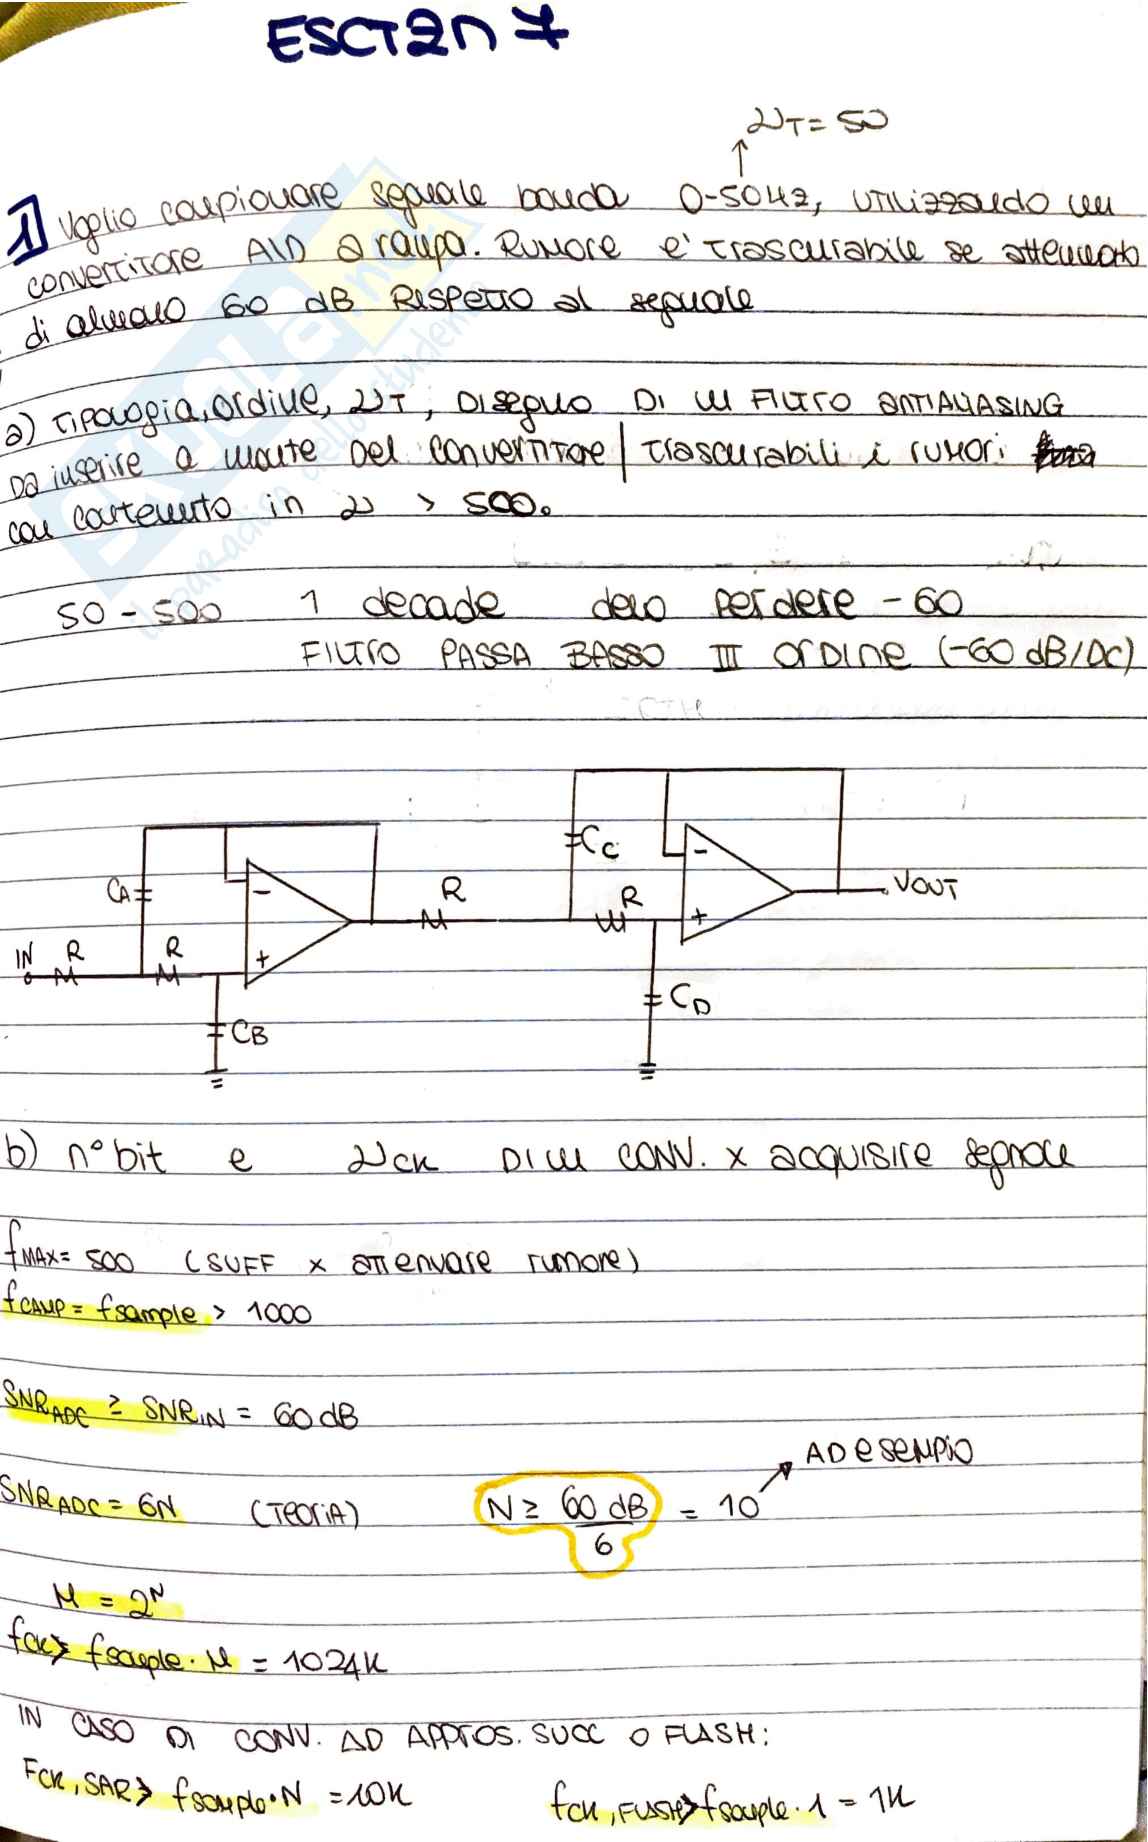 ESCT2n7
νT = 50
1) Voglio campionare segnale banda 0-50Hz, utilizzando un
convertitore A/D a rampa. Rumore e' trascurabile se attenuato
di almeno 60 dB RISPETTO al segnale
a) Tipologia, ordine, νT, DISEGNO DI un FILTRO ANTIALIASING
Da inserire a monte Del convertitore | trascurabili i rumori
con contenuto in ν > 500.
50-500 1 decade devo perdere -60
FILTRO PASSA BASSO III ordine (-60 dB/DC)
CC
-
CA
R
R
VOUT
-
+
IN R
R
+
CD
CB
b) n° bit e νck DI un CONV. x acquisire segnale
fMAX = 500 (SUFF x attenuare rumore)
fCAMP = fsample > 1000
SNRADC ≥ SNRIN = 60 dB
AD esempio
SNRADC = 6N (Teoria) N ≥ 60 dB / 6 = 10
M = 2^N
fck > fsample · M = 1024K
IN CASO DI CONV. AD APPROS. SUCC O FLASH:
FCK, SAR > fsample · N = 10K fck, FLASH > fsample · 1 = 1K